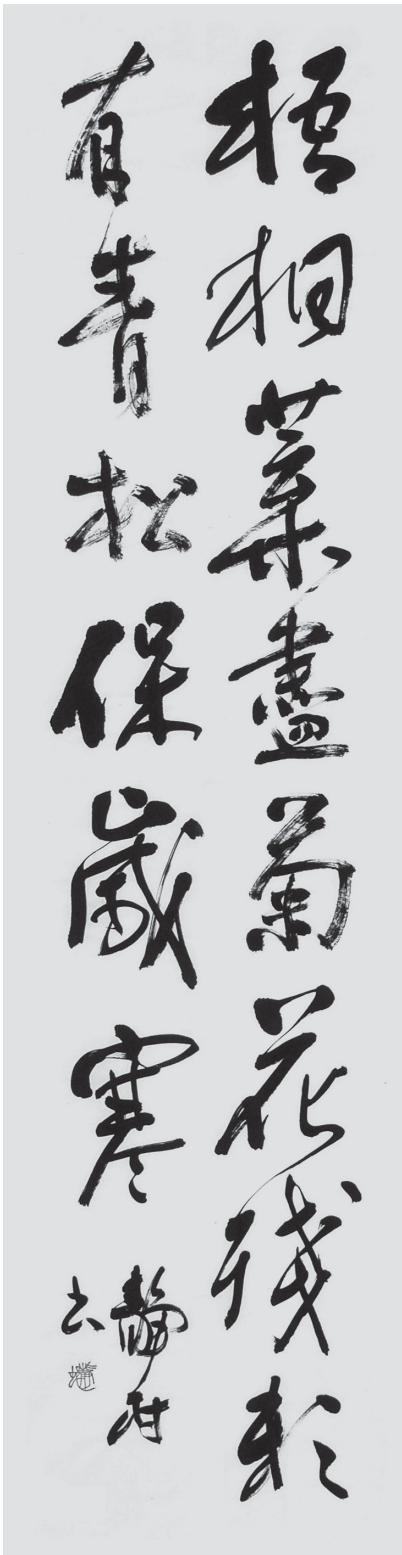 梧桐葉盡菊花殘頼
有青松保歲寒
靜
書